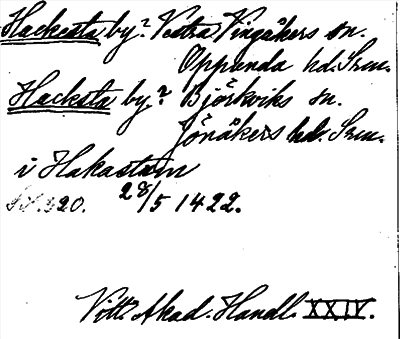 Hacksta by? Vestra Vingåkers sn.
Oppunda hd. Srm.
Hacksta by? Björkviks sn.
Jönåkers hd. Srm.
i Hakastum
s. 320. 28/5 1422.
Vitt. Akad. Handl. XXIV.